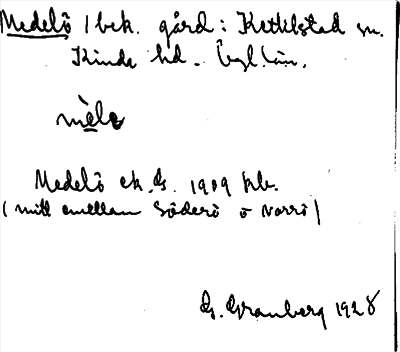 Medelö 1 bek. gård i Kettilstad sn.
Kinda hd. Ögl. län.
mèlɵ
Medelö ek. G. 1909 kb.
(mitt emellan Söderö o Norrö)
G. Granberg 1928